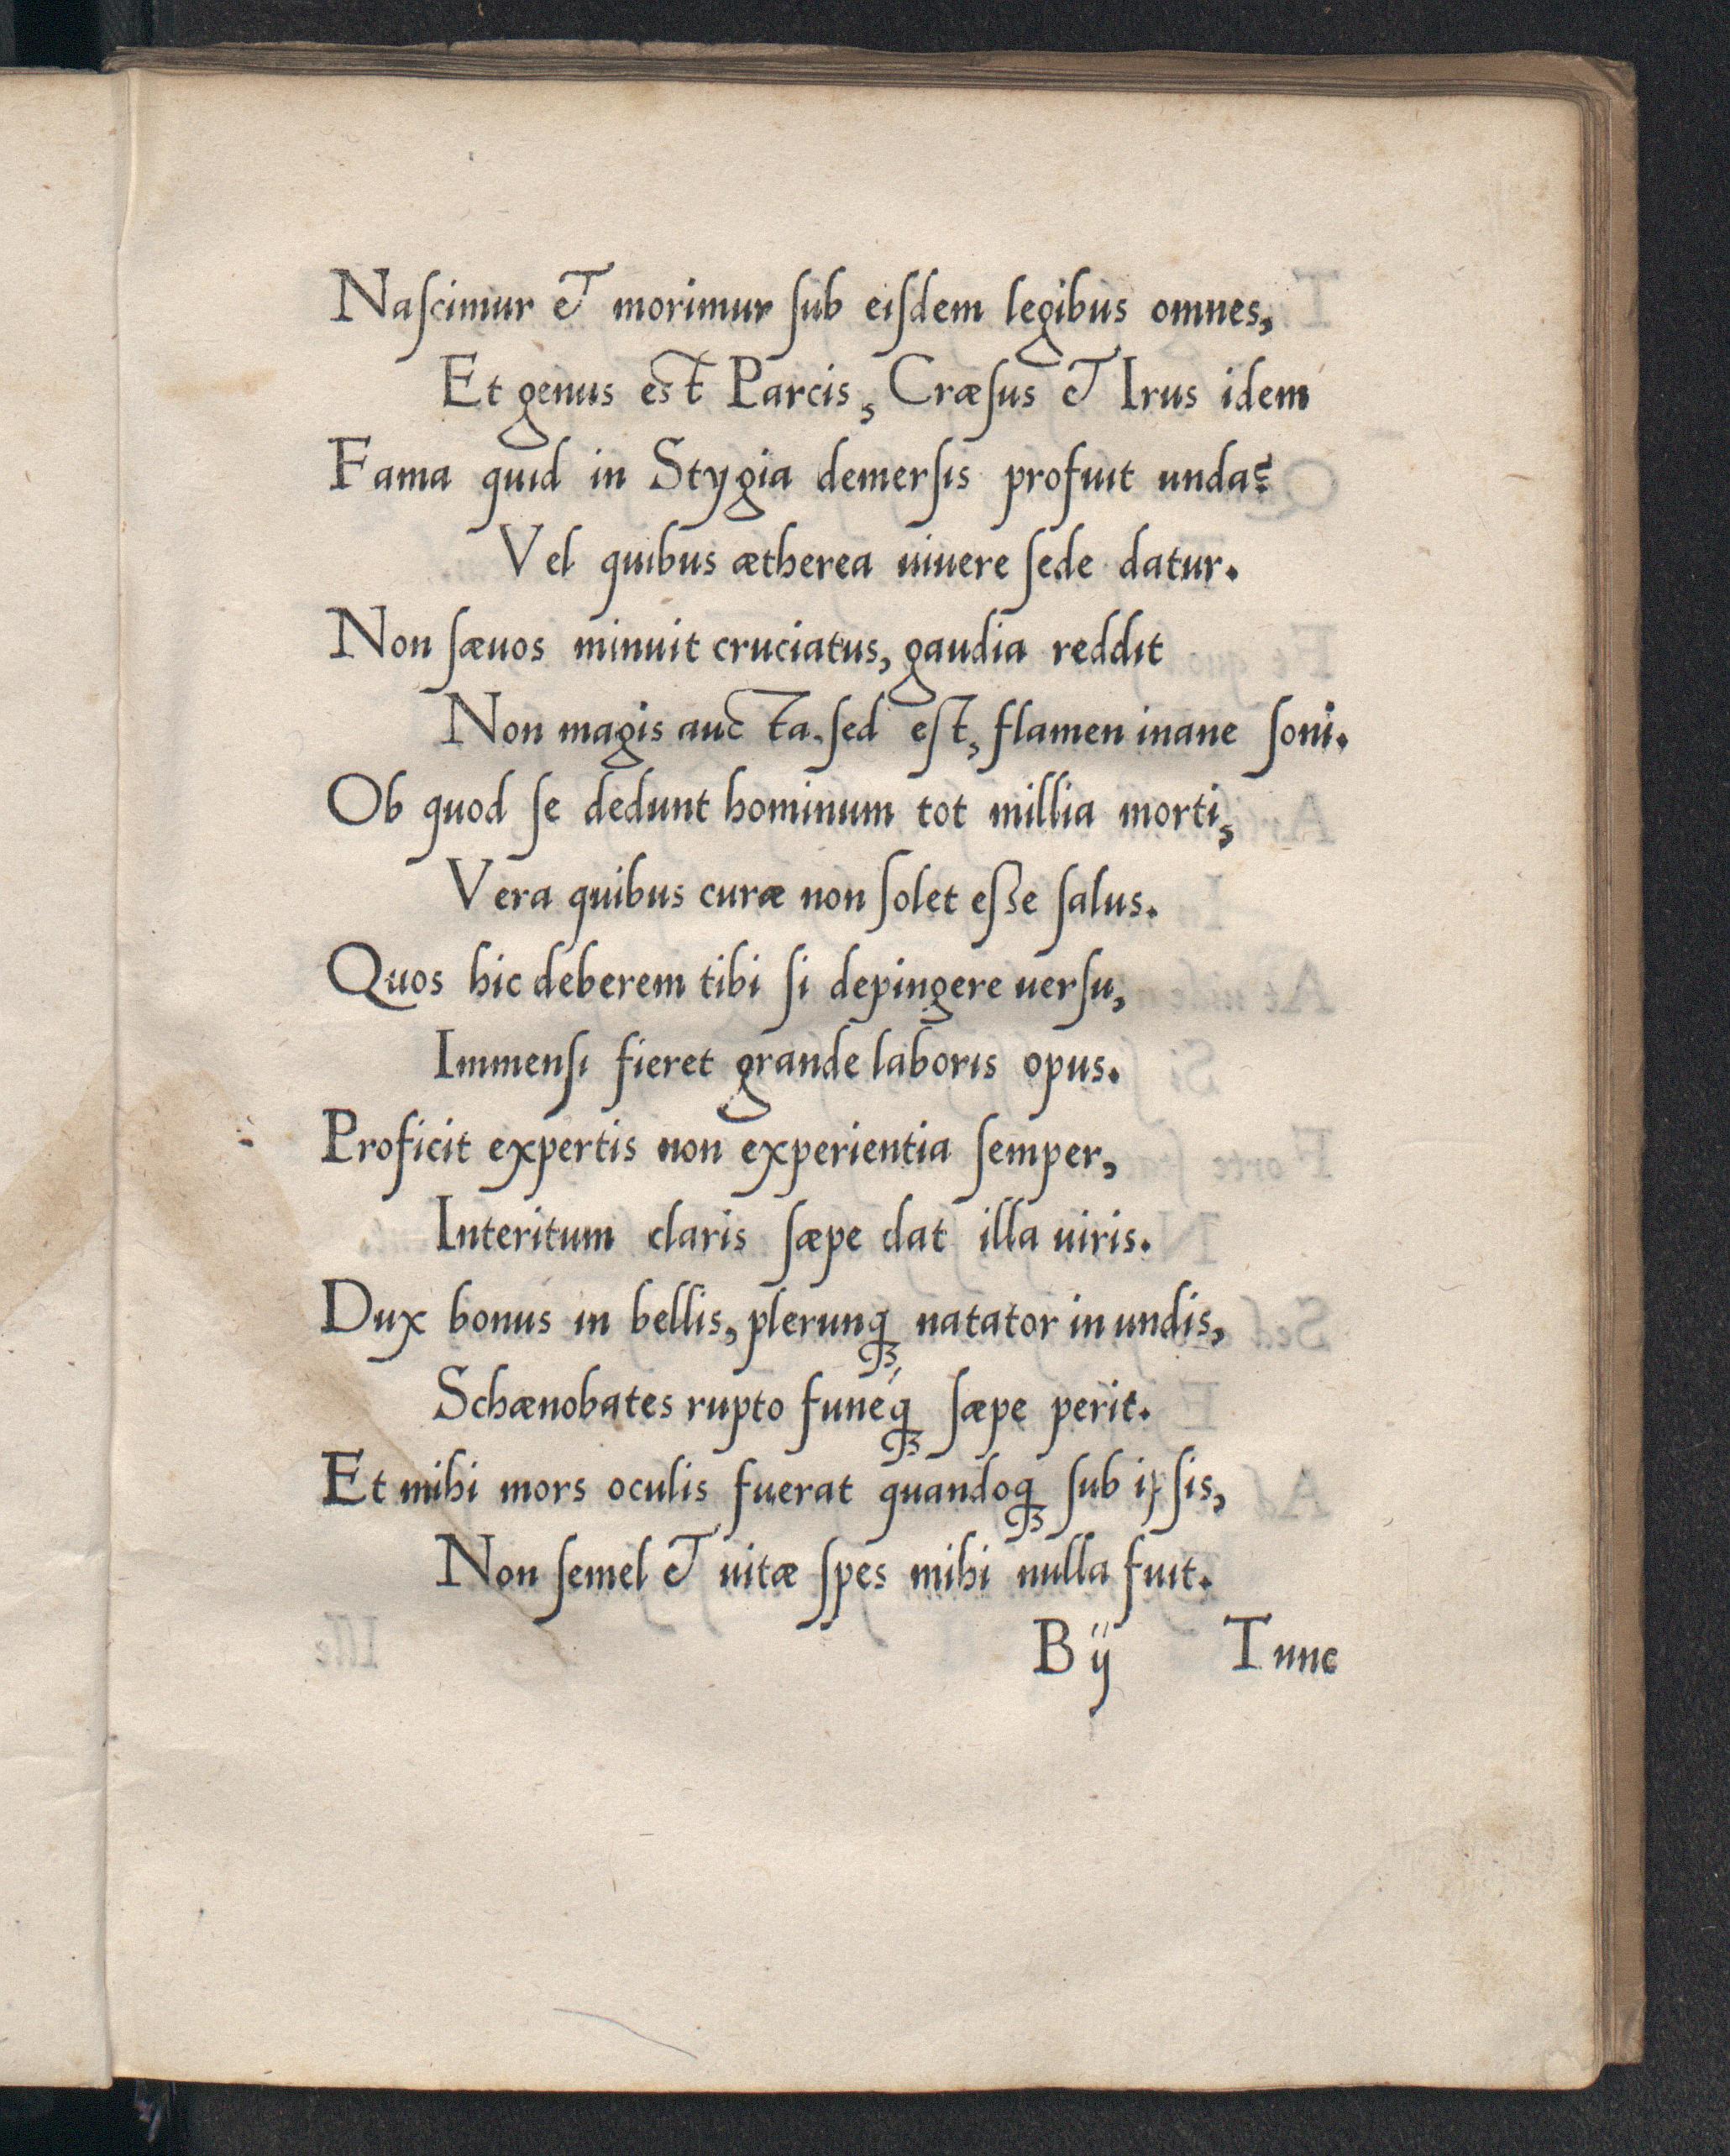 Naſcimur & morimur ſub eiſdem legibus omnes,
Et genus est Parcis, Cræſus & Irus idem
Fama quid in Stygia demerſis profuit unda?
Vel quibus ætherea uiuere ſede datur.
Non ſæuos minuit cruciatus, gaudia reddit
Non magis aucta. ſed eſt, flamen inane ſoni.
Ob quod ſe dedunt hominum tot millia morti,
Vera quibus curæ non ſolet eſse ſalus.
Quos hic deberem tibi ſi depingere uerſu,
Immenſi fieret grande laboris opus.
Proficit expertis non experientia ſemper,
Interitum claris ſæpe dat illa uiris.
Dux bonus in bellis, plerunqꝫ natator in undis,
Schænobates rupto funéqꝫ ſæpe perit.
Et mihi mors oculis fuerat quandoqꝫ ſub ipſis,
Non ſemel & uitæ ſpes mihi nulla fuit.
B ij Tunc